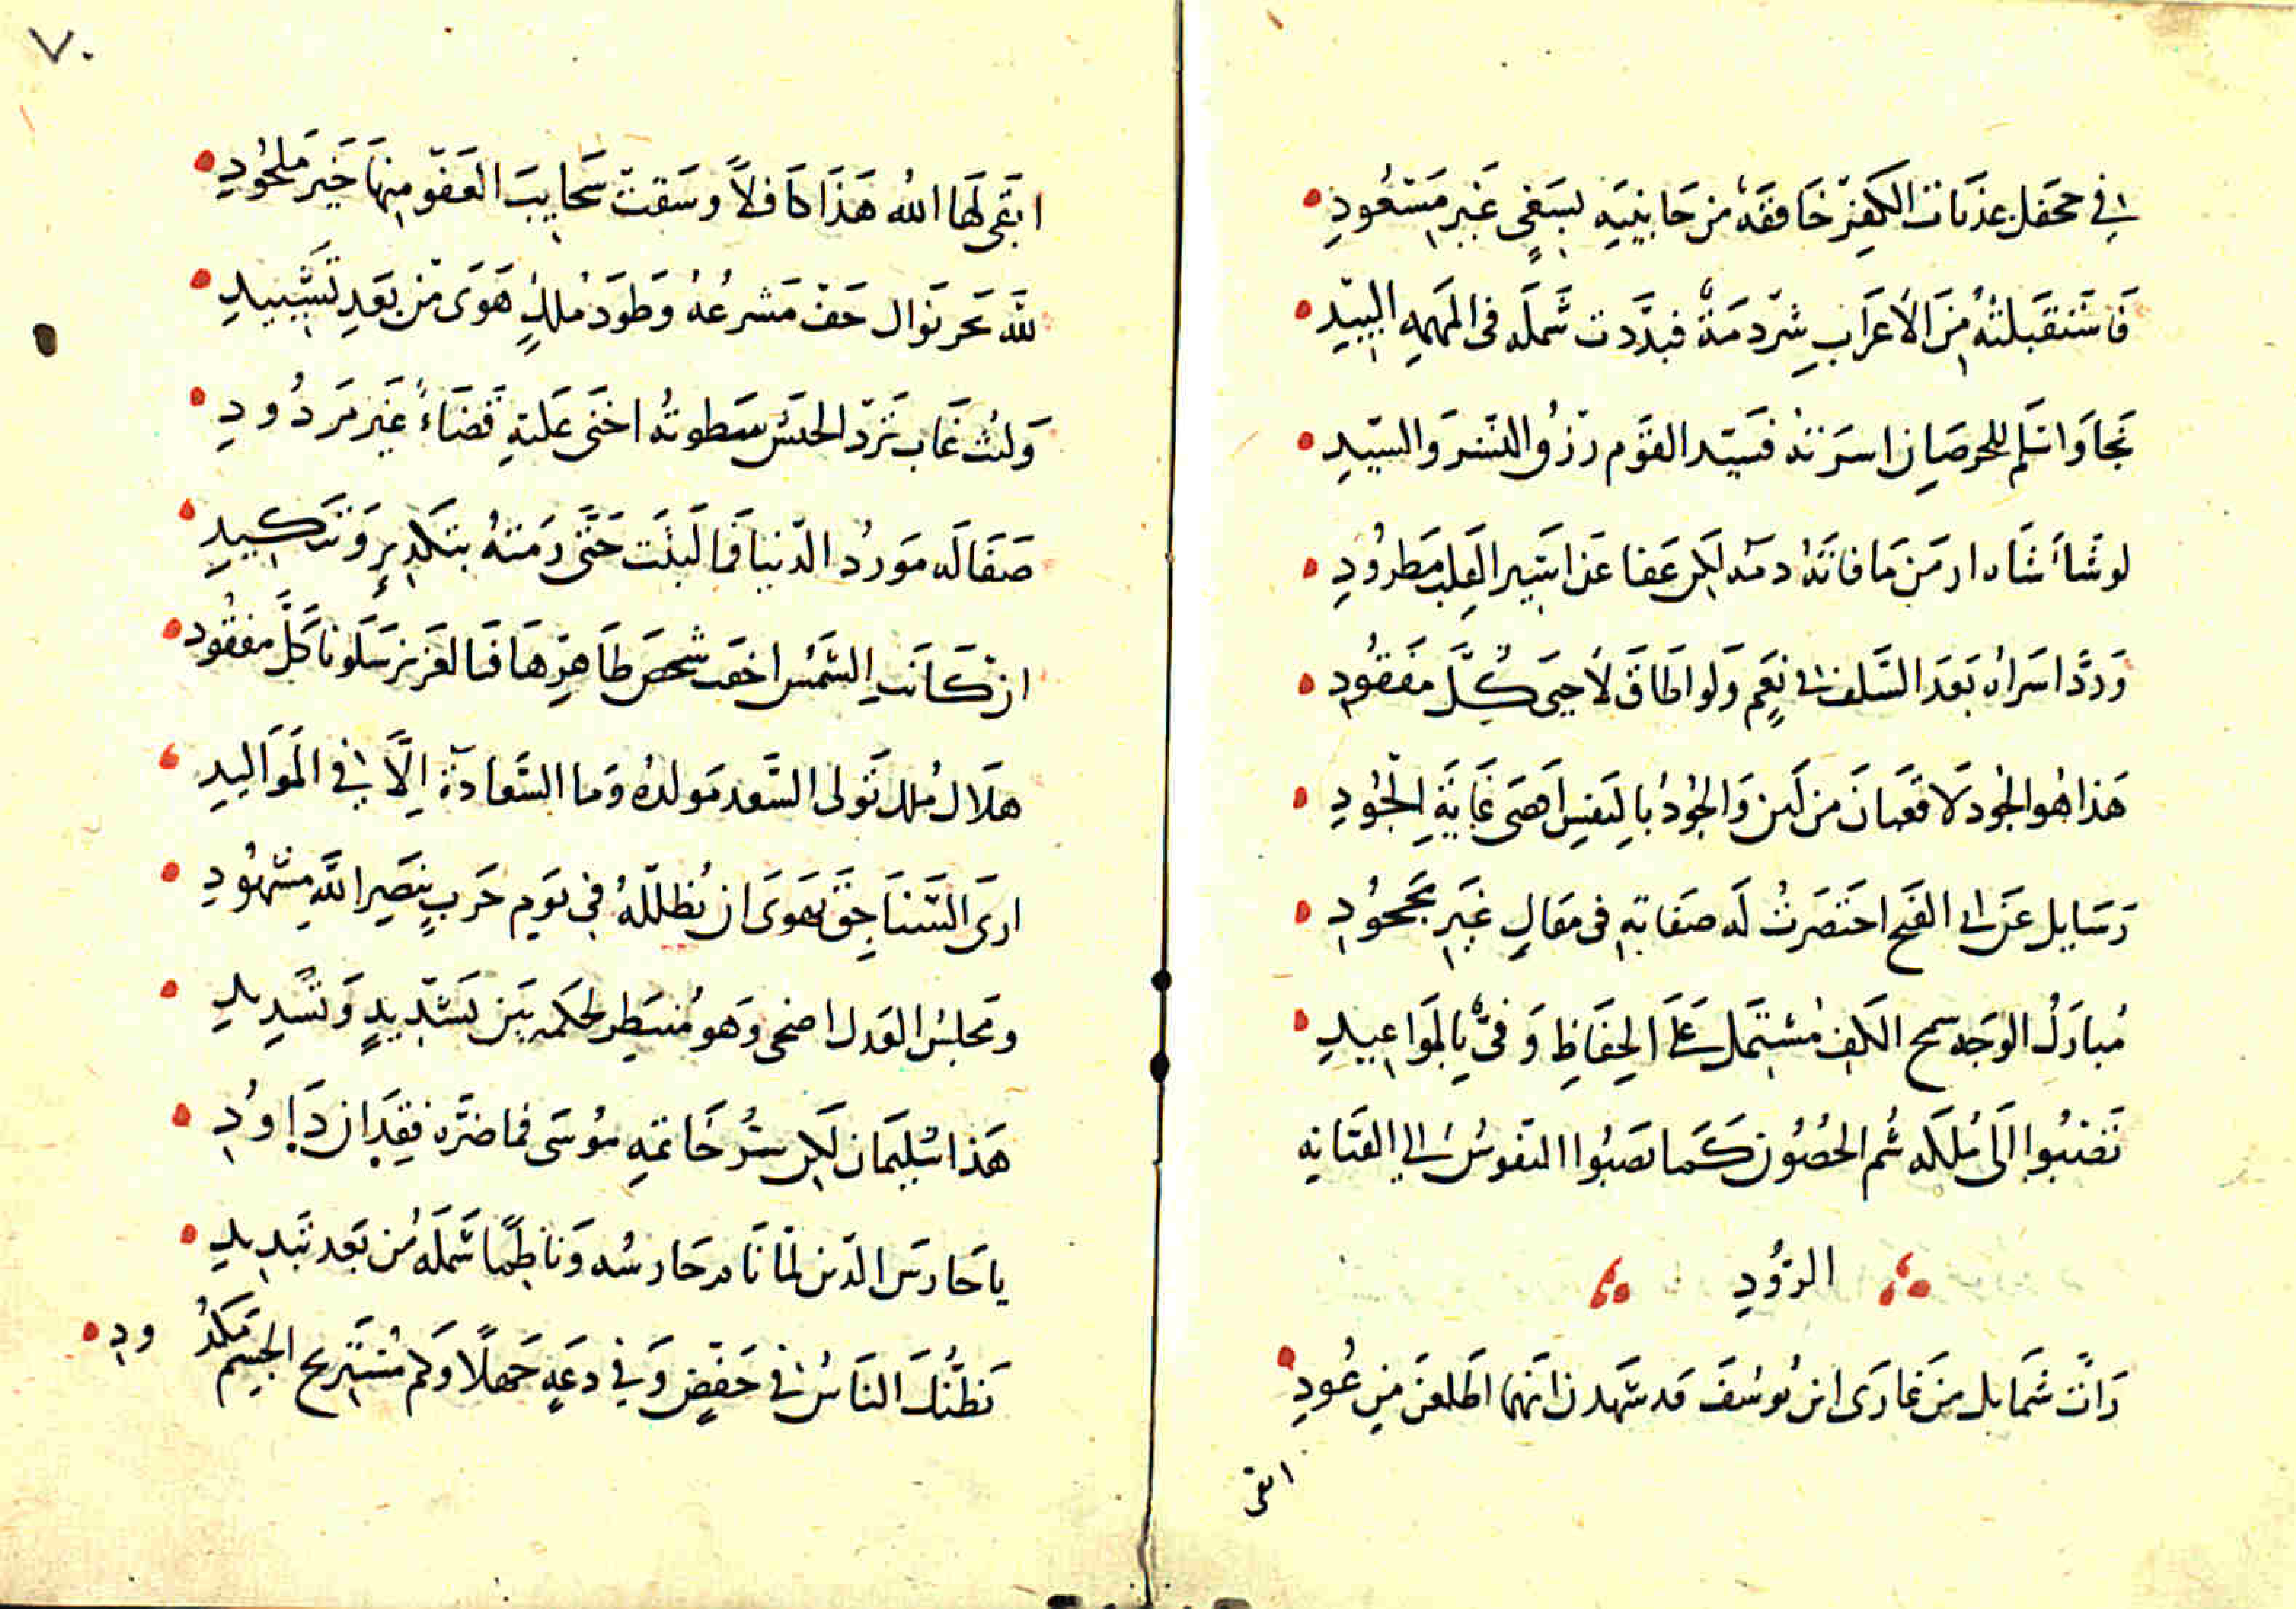 فِي جحفل عذبات الكفر خافقة من جانبيه بسَعْىٍ غَيْرِ مَسْعُودِ
فَاسْتَقبَلتْهُ مِنَ الأعرَابِ شِرْذمَةٌ فبدَّدت شَملَه فى المَهمهِ البِيدِ
نَجَا وَاسْلم للحرصَان اسرَته فسَيّد القَوْم رزق النّسْر وَالسِّيدِ
لو شَاء شَاه ارمَن مَا فاتَهُ دمه لكِن عَفا عَن اسِير القلب مَطرُودِ
وَردَّ اسرَاه بَعدَ السَّلب فى نِعَمٍ وَلو اطَاقَ لأحيَى كُلَّ مفقُودِ
هَذا هُو الجُود لَا قعبَانَ من لَبن وَالجُودُ بالنفسِ اقصَى غَايَةِ الجُودِ
وَسَايل عَن ابى الفتح اختَصَرتُ لَه صفَاتِهِ فى مقالٍ غَيرِ مَجحُودِ
مُبارَكُ الوَجه سمح الكفِّ مُشتَمل عَلَى الحِفَاظِ وَفىٌّ بِالمَوَاعِيدِ
تَصْبُوا إلَى مُلكه شُم الحصُون كَمَا تصبُوا النّفوسُ الى الفتانه
الرُّودِ
ذَاتُ شَمَايل من غازى ابن يُوسُفَ قد شَهدن انهما اطلعن مِن عُودِ
ابقى
٧٠
ابقَى لَهَا الله هَذَا كَافلاً وسَقتْ سَحَايبَ العَفو مِنهَا خَيْرَ مَلحُودِ
للهِ بَحر نوَال جَفّ مَشرعُهُ وَطَود مُلكٍ هَوَى مْن بَعَدِ تَشْييدِ
وَليْث غَاب تَرُدّ الجيش سَطوتُه اخنَى عَليْهِ قَضَاءٌ غَير مَردُودِ
صَفَا لَه مَورِدُ الدّنيا فمَا لَبثَت حَتَّى رَمَتهُ بتكدِيرٍ وَتنكيدِ
ان كَانَت الشَّمس اخفت شخصَ ظاهِرهَا فَالعَزيز سَلَونا كُلَّ مفقُود
هلَال مُلك تَوَلى السَّعد مَولدُه وَما السَّعادَة إلّا فى المَوَالِيدِ
ارَى السَّنَاجِقَ تَهوَى ان تُظلّلهُ فى يَوم حَربٍ بنَصرِ اللهِ مَشْهُودِ
ومَجلسُ العَدل اضحى وَهو مُنتظر لحكمه بَين تشْدِيدٍ وَتَسْدِيدِ
هَذا سُليمَان لكِن سرُّ خَاتمهِ مُوسَى فما ضرّه فِقدَان دَاوُدِ
يا حَارسَ الدّين لمّا نَام حَارسُه وَنَاظِمًا شَملَهُ من بَعد تَبدِيدِ
تَظنُّكَ النَّاسُ فى خَفضٍ وَفى دعَةٍ جَهلًا وَكم مُستَريح الجِسْم مَكدُودِ